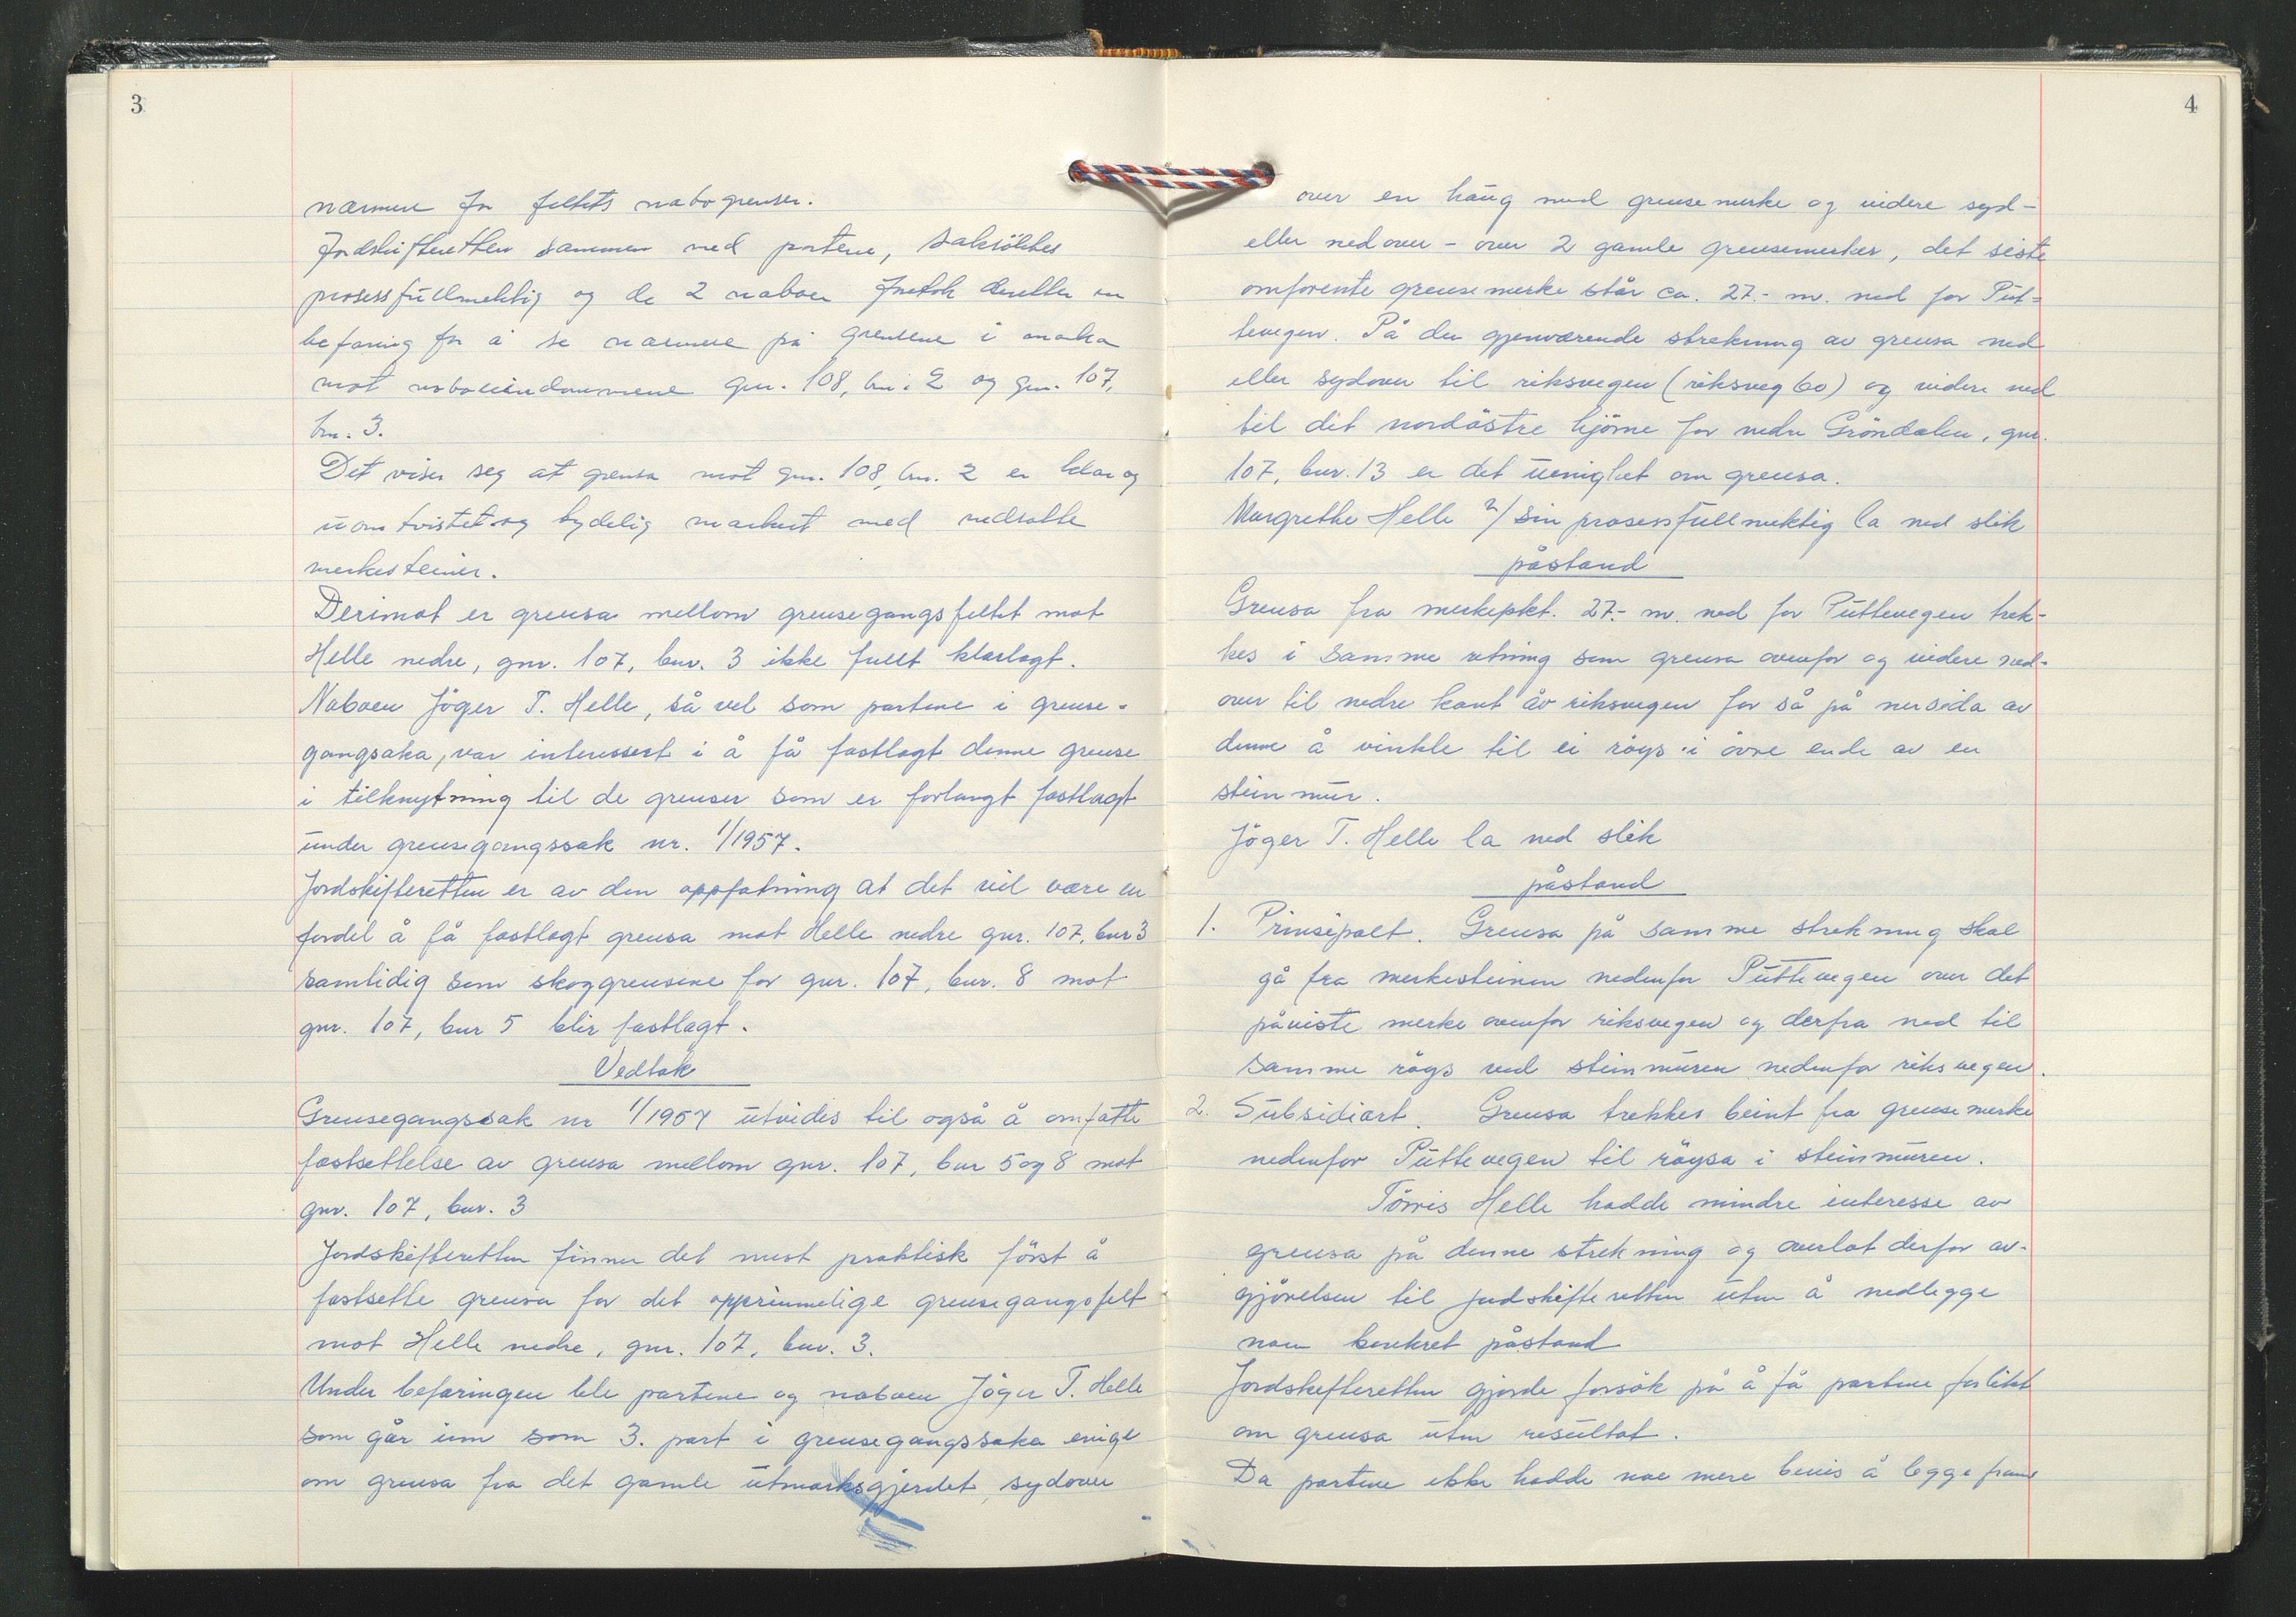 3
nærmere for feltets nabogrenser.
Jordskifteretten sammen med partene, saksøktes
prosessfullmektig og de 2 naboer foretok deretter en
befaring for å se nærmere på grensene i marka
mot naboeiendommene gnr. 108, bnr. 2 og gnr. 107,
bnr. 3.
Det viser seg at grensa mot gnr. 108, bnr. 2 er klar og
uomtvistet og tydelig markert med nedsatte
merkesteiner.
Derimot er grensa mellom grensegangsfeltet mot
Helle nedre, gnr. 107, bnr. 3 ikke fullt klarlagt.
Naboen Jöger T. Helle, så vel som partene i grense-
gangsaka, var interessert i å få fastlagt denne grense
i tilknytning til de grenser som er forlangt fastlagt
under grensegangssak nr. 1/1957.
Jordskifteretten er av den oppfatning at det vil være en
fordel å få fastlagt grensa mot Helle nedre gnr. 107, bnr 3
samtidig som skoggrensene for gnr. 107, bnr. 8 mot
gnr. 107, bnr 5 blir fastlagt.
Vedtak
Grensegangssak nr 1/1957 utvides til også å omfatte
fastsettelse av grensa mellom gnr. 107, bnr 5 og 8 mot
gnr. 107, bnr. 3
Jordskifteretten finner det mest praktisk först å
fastsette grensa for det opprinnelige grensegangsfelt
mot Helle nedre, gnr. 107, bnr. 3.
Under befaringen ble partene og naboen Jöger T. Helle
som går inn som 3. part i grensegangssaka enige
om grensa fra det gamle utmarksgjerdet, sydover
4
over en haug med grensemerke og videre syd-
eller nedover - over 2 gamle grensemerker, det siste
omforente grensemerke står ca. 27.- m. ned for Put-
tevegen. På den gjenværende strekning av grensa ned
eller sydover til riksvegen (riksveg 60) og videre ned
til det nordöstre hjörne for nedre Gröndalen, gnr.
107, bnr. 13 er det uenighet om grensa.
Margrethe Helle v/ sin prosessfullmektig la ned slik
påstand
Grensa fra merkepkt. 27.- m. ned for Puttevegen trek-
kes i samme retning som grensa ovenfor og videre ned-
over til nedre kant av riksvegen for så på nersida av
denne å vinkle til ei röys i övre ende av en
steinmur.
Jöger T. Helle la ned slik
påstand
1. Prinsipalt. Grensa på samme strekning skal
gå fra merkesteinen nedenfor Puttevegen over det
påviste merke ovenfor riksvegen og derfra ned til
samme röys ved steinmuren nedenfor riksvegen.
2. Subsidiært. Grensa trekkes beint fra grensemerke
nedenfor Puttevegen til röysa i steinmuren.
Törris Helle hadde mindre interesse av
grensa på denne strekning og overlot derfor av-
gjörelsen til jordskifteretten uten å nedlegge
noen konkret påstand
Jordskifteretten gjorde forsök på å få partene forlikt
om grensa uten resultat.
Da partene ikke hadde noe mere bevis å legge fram